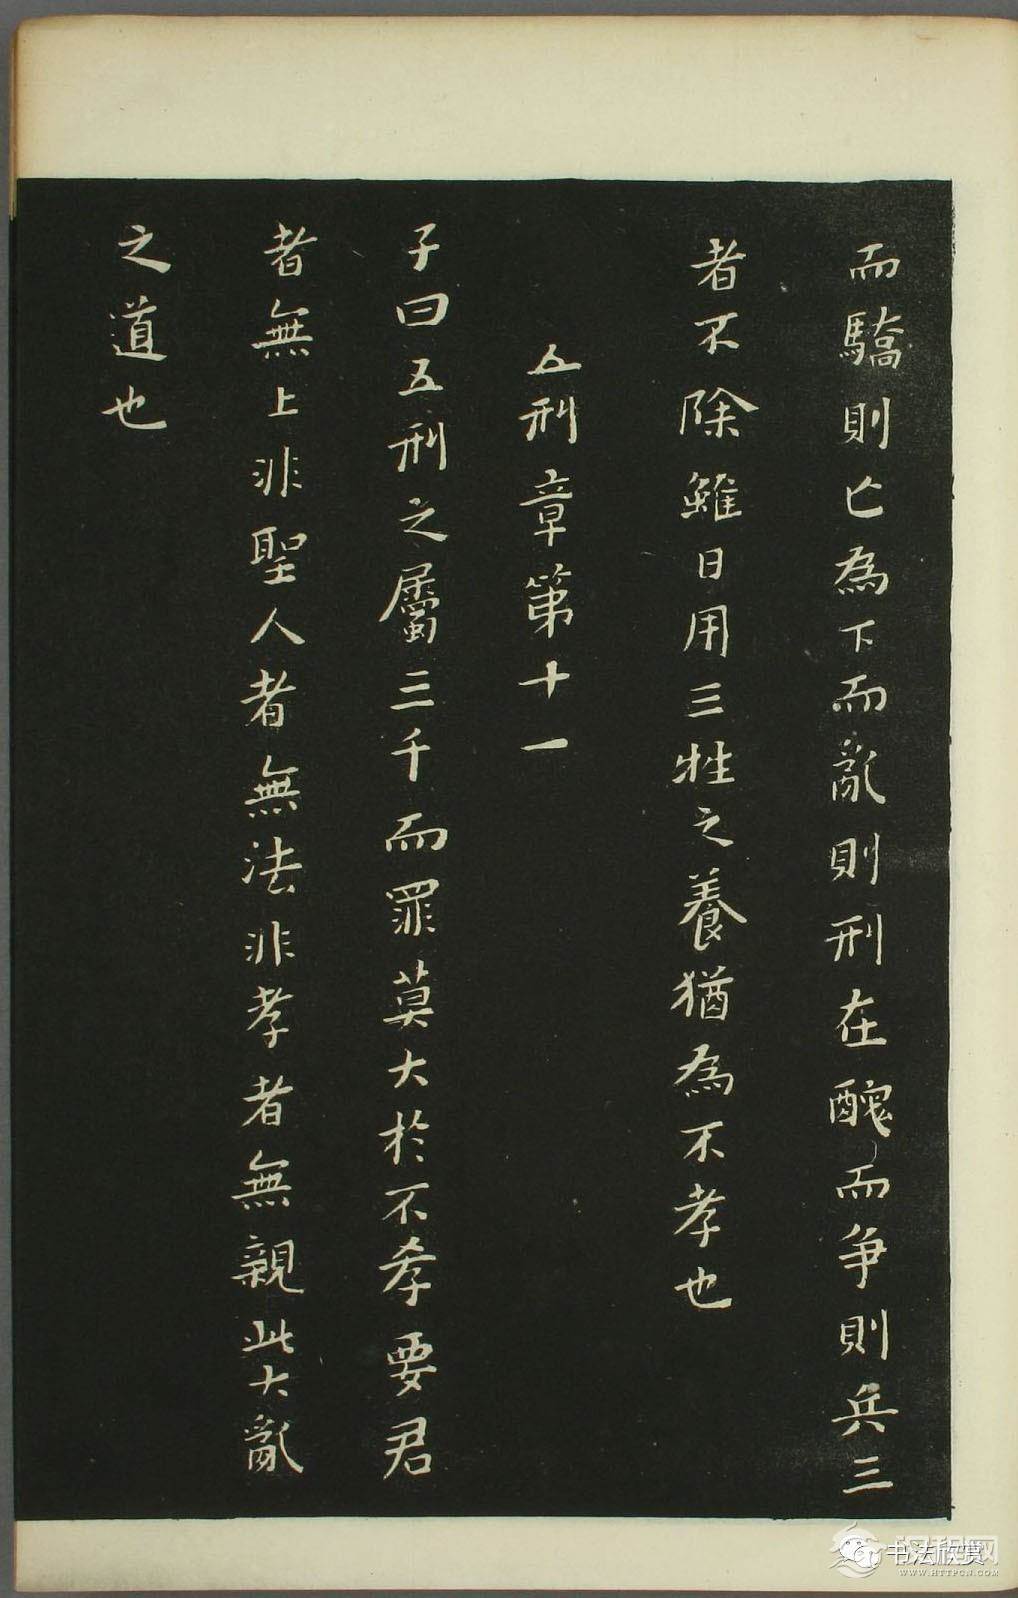 而驕則亡為下而亂則刑在醜而爭則兵三
者不除雖日用三牲之養猶為不孝也
五刑章第十一
子曰五刑之屬三千而罪莫大於不孝要君
者無上非聖人者無法非孝者無親此大亂
之道也
书法欣赏
汉程网
WWW.HTTPCN.COM